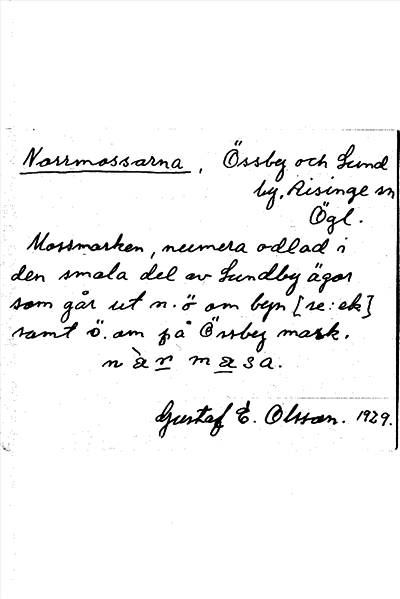 Norrmossarna, Össby och Lund
by, Risinge sn
Ögl.
Mossmarken, numera odlad i
den smala del av Lundby ägor
som går ut n.ö om byn [se: ek]
samt ö. om på Össby mark.
nàr masa.
Gustaf E. Olsson. 1929.